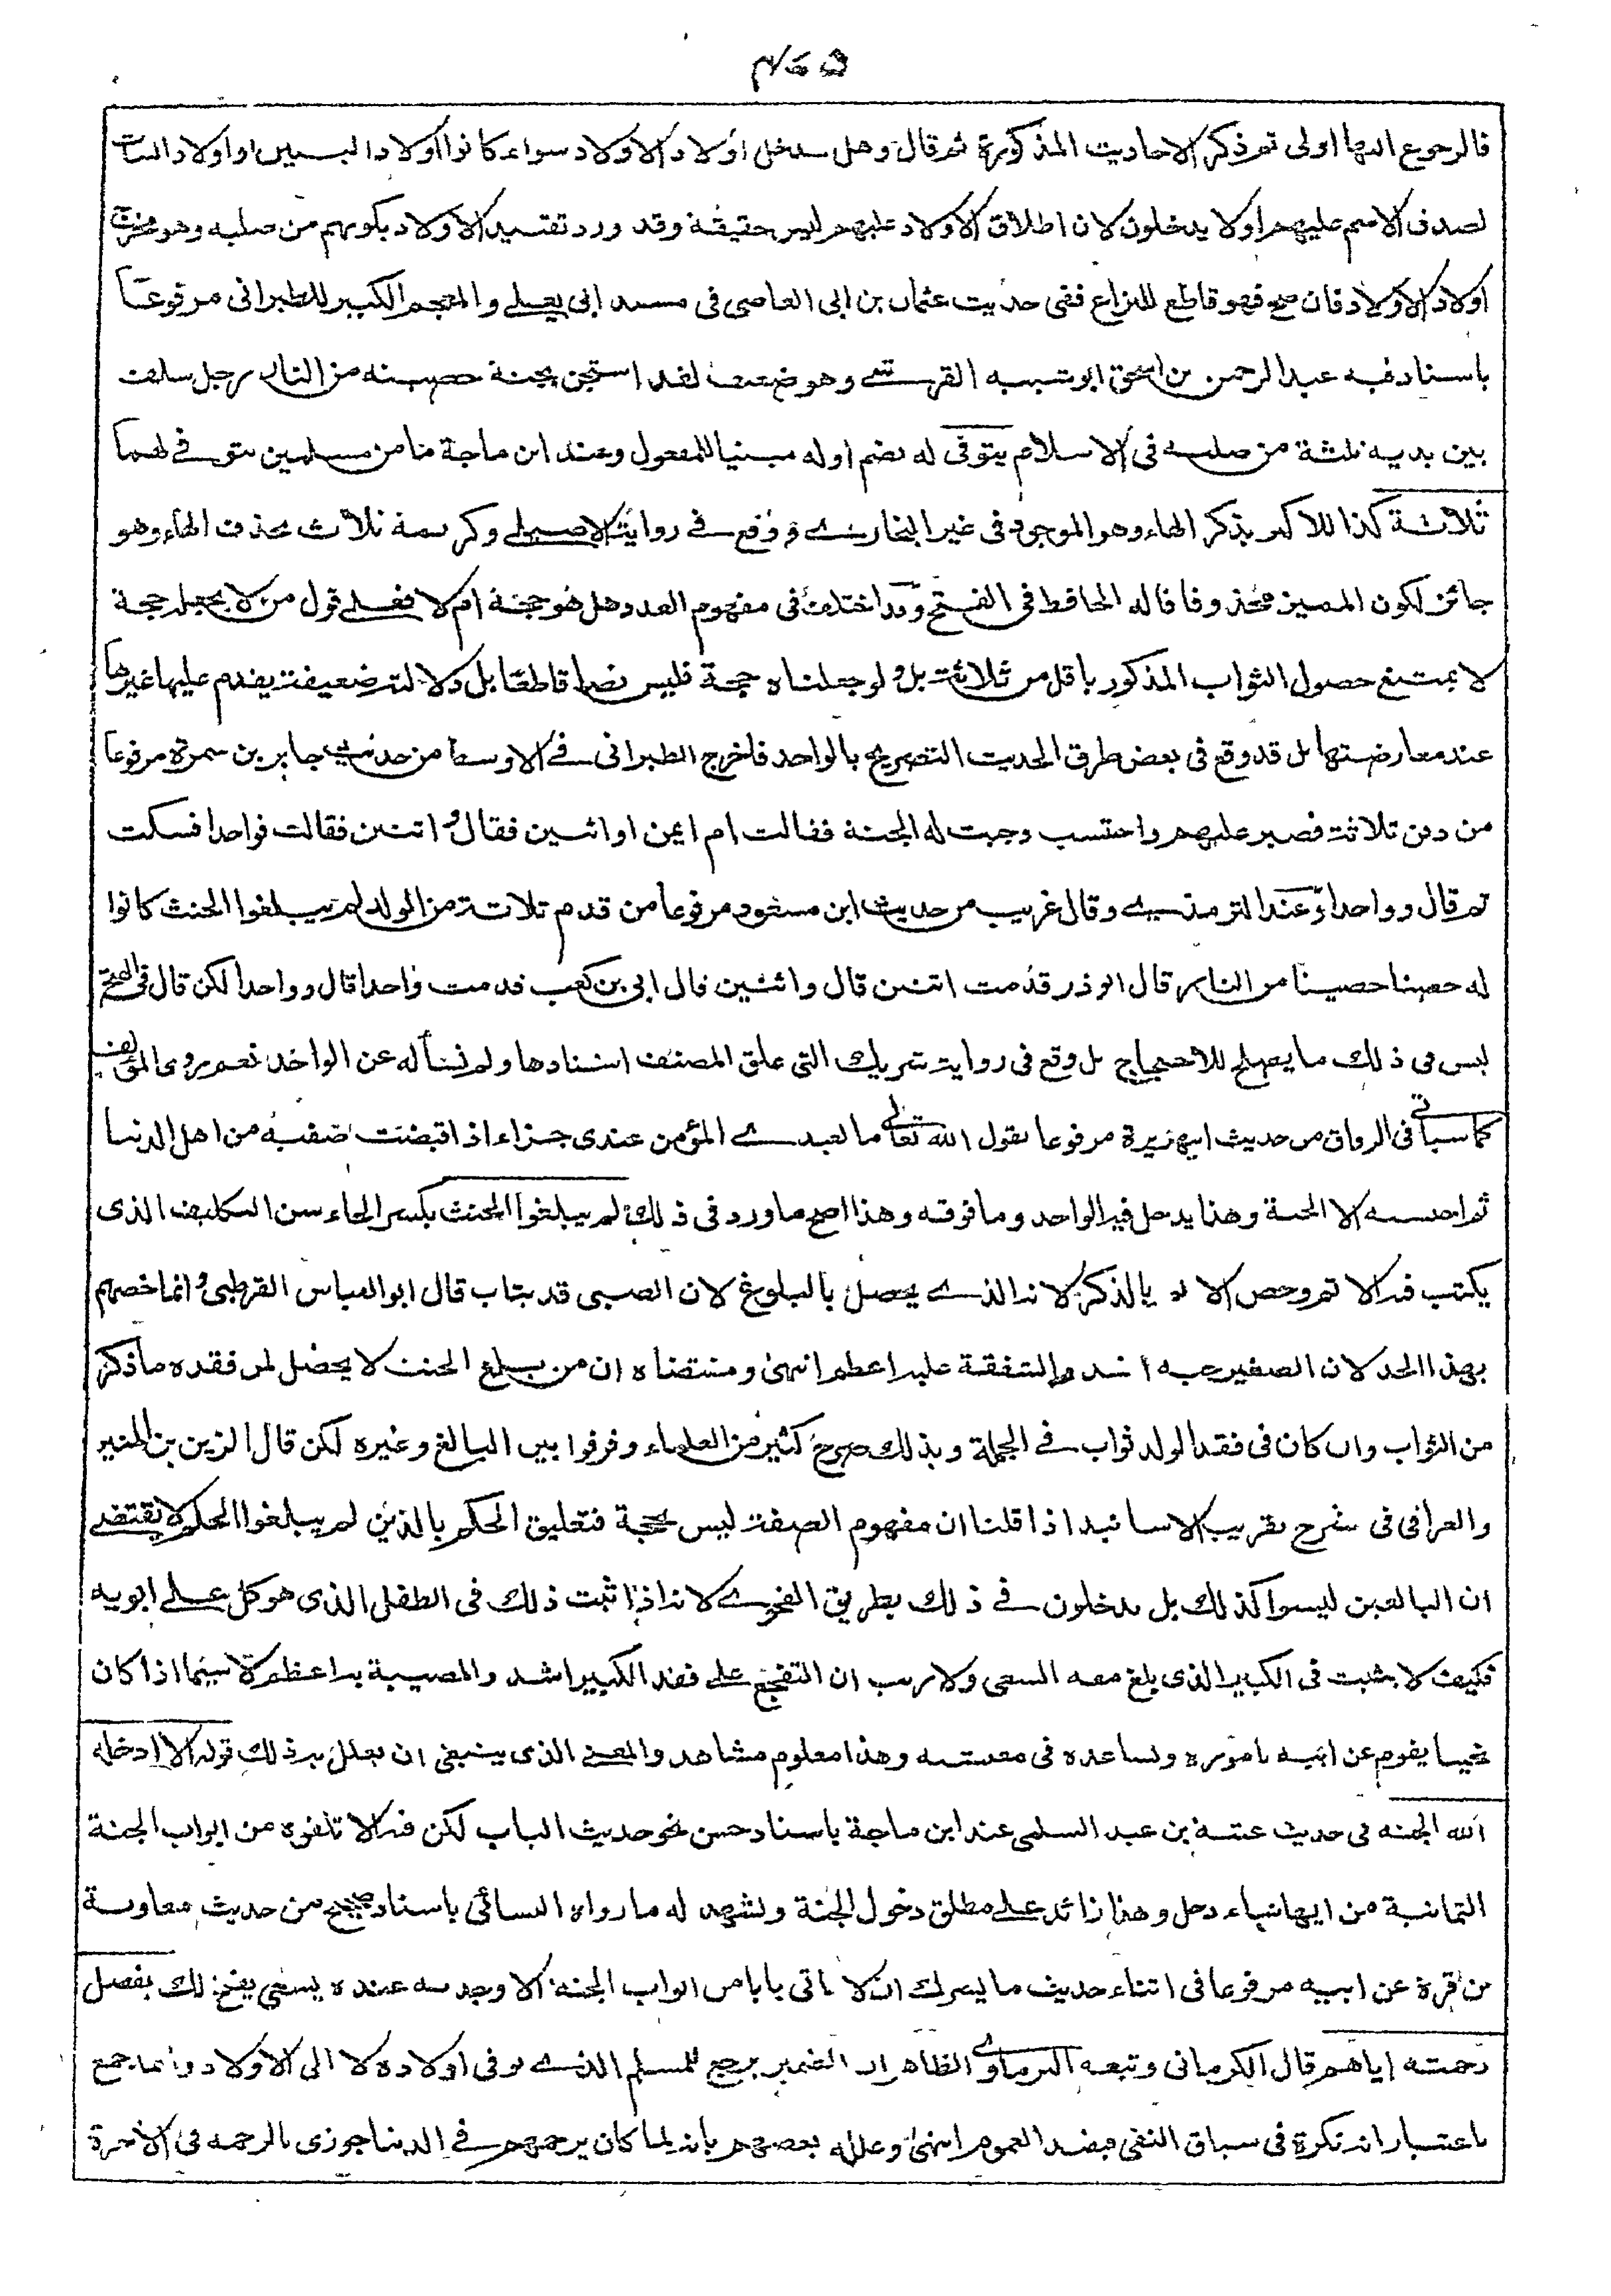 ٤٧٥
فالرجوع اليها اولى ثم ذكر الاحاديث المذكورة ثم قال وهل يدخل اولاد الاولاد سواء كانوا اولاد البنين او اولاد البنات
لصدق الاسم عليهم اولا يدخلون لان اطلاق الاولاد عليهم ليس حقيقة وقد ورد تقييد الاولاد بكونهم من صلبه وهو مخرج
اولاد الاولاد فان صح فهو قاطع للنزاع ففى حديث عثمان بن ابى العاصى فى مسند ابى يعلى والمعجم الكبير للطبرانى مرفوعا
باسناد فيه عبد الرحمن بن اسحق ابو شيبه القرشى وهو ضعيف لقد استجن بجنة حصينه من النار رجل سلف
بين يديه ثلثة من صلبه فى الاسلام يتوفى له بضم اوله مبنيا للمفعول وعند ابن ماجة ما من مسلمين يتوفى لهما
ثلاثة كذا للاكثر بذكر الهاء وهو الموجود فى غير البخارى ووقع فى رواية الاصيلى وكريمة ثلاث بحذف الهاء وهو
جائز لكون المميز محذوفا قاله الحافظ فى الفتح وقد اختلف فى مفهوم العدد هل هو حجة ام لا فعلى قول من لا يجعله حجة
لا يمتنع حصول الثواب المذكور باقل من ثلاثة بل ولو جعلناه حجة فليس نصا قاطعا بل دلالته ضعيفة يقدم عليها غيرها
عند معارضتها بل قد وقع فى بعض طرق الحديث التصريح بالواحد فاخرج الطبرانى فى الاوسط من حديث جابر بن سمرة مرفوعا
من دفن ثلاثة فصبر عليهم واحتسب وجبت له الجنة فقالت ام ايمن او اثنين فقال و اثنين فقالت فواحدا فسكت
ثم قال وواحدا وعند الترمذى وقال غريب من حديث ابن مسعود مرفوعا من قدم ثلاثة من الولد لم يبلغوا الحنث كانوا
له حصنا حصينا من النار قال ابو ذر قدمت اثنين قال واثنين قال ابى بن كعب قدمت واحدا قال وواحدا لكن قال فى الفتح
ليس فى ذلك ما يصلح للاحتجاج بل وقع فى رواية شريك التى علق المصنف اسنادها ولم نسأله عن الواحد نعم روى المؤلف
كما سيأتى فى الرقاق من حديث ابى هريرة مرفوعا يقول الله تعالى ما لعبدى المؤمن عندى جزاء اذا قبضت صفيه من اهل الدنيا
ثم احتسبه الا الجنة وهذا يدخل فيه الواحد وما فوقه وهذا اصح ما ورد فى ذلك لم يبلغوا الحنث بكسر الحاء سن التكليف الذى
يكتب فيه الاثم وخص الاثم بالذكر لانه الذى يحصل بالبلوغ لان الصبى قد يثاب قال ابو العباس القرطبى وانما خصهم
بهذا الحد لان الصغير حبه اشد والشفقة عليه اعظم انتهى ومقتضاه ان من بلغ الحنث لا يحصل لمن فقده ما ذكر
من الثواب وان كان فى فقد الولد ثواب فى الجملة وبذلك صرح كثير من العلماء وفرقوا بين البالغ وغيره لكن قال الزين بن المنير
والعراقى فى شرح تقريب الاسانيد اذا قلنا ان مفهوم الصفة ليس بحجة فتعليق الحكم بالذين لم يبلغوا الحلم لا يقتضى
ان البالغين ليسوا كذلك بل يدخلون فى ذلك بطريق الفحوى لانه اذا ثبت ذلك فى الطفل الذى هو كل على ابويه
فكيف لا يثبت فى الكبير الذى بلغ معه السعى ولا ريب ان التفجع على فقد الكبير اشد والمصيبة به اعظم لا سيما اذا كان
نجيبا يقوم عن ابيه باموره ويساعده فى معيشته وهذا معلوم مشاهد والمعنى الذى ينبغى ان يعلل به ذلك قوله الا ادخله
الله الجنه فى حديث عتبة بن عبد السلمى عند ابن ماجة باسناد حسن نحو حديث الباب لكن فيه الا تلقوه من ابواب الجنة
الثمانية من ايها شاء دخل وهذا زائد على مطلق دخول الجنة ويشهد له ما رواه النسائى باسناد صحيح من حديث معاوية
بن قرة عن ابيه مرفوعا فى اثناء حديث ما يسرك ان لا تاتى بابا من ابواب الجنة الا وجدته عنده يسعى يفتح لك بفضل
رحمته اياهم قال الكرمانى وتبعه البرماوى الظاهر ان الضمير يرجع للمسلم الذى توفى اولاده لا الى الاولاد وانما جمع
باعتبار انه نكرة فى سياق النفى فيفيد العموم انتهى وعلله بعضهم بانه لما كان يرحمهم فى الدنيا جوزى بالرحمه فى الاخرة